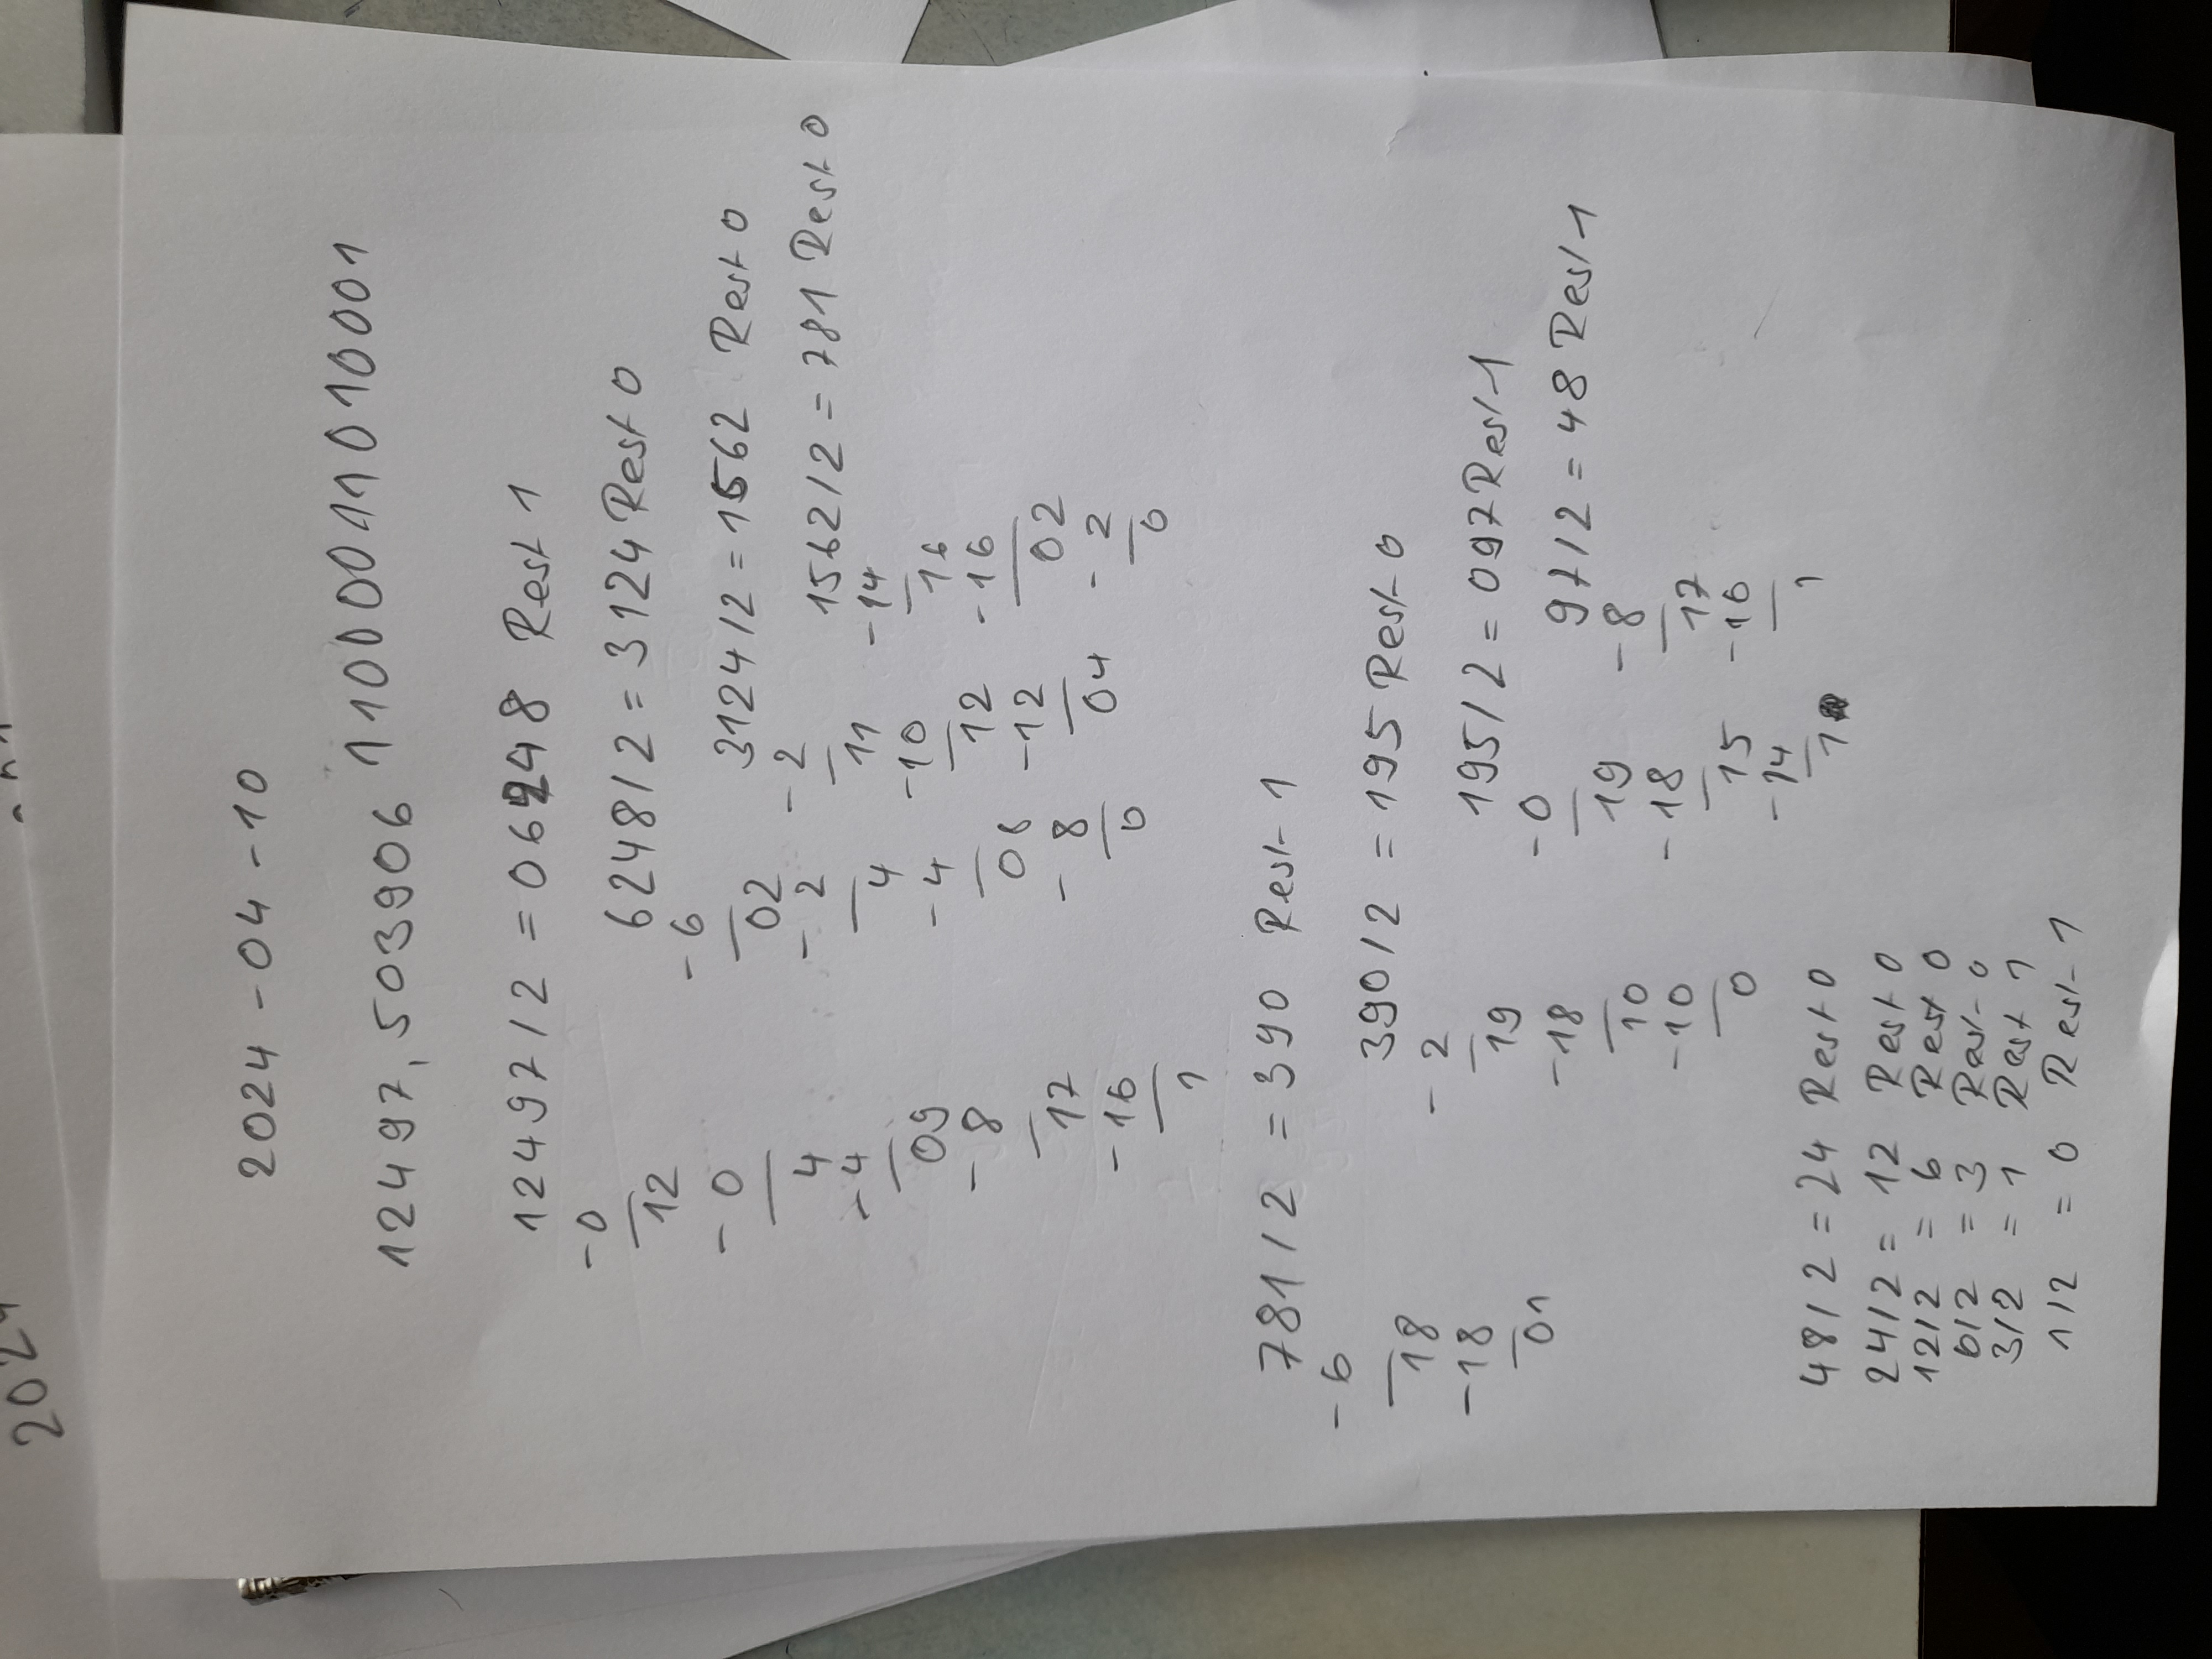 2024
2024-04-10
12497,503906 11000011010001
12497/2 = 06248 Rest 1
-0
12
-0
4
-4
09
-8
17
-16
1
6248/2 = 3124 Rest 0
-6
02
-2
4
-4
08
-8
0
3124/2 = 1562 Rest 0
-2
11
-10
12
-12
04
1562/2 = 781 Rest 0
-14
16
-16
02
-2
0
781/2 = 390 Rest 1
-6
18
-18
01
390/2 = 195 Rest 0
-2
19
-18
10
-10
0
195/2 = 097 Rest 1
-0
19
-18
15
-14
1
97/2 = 48 Rest 1
-8
17
-16
1
48/2 = 24 Rest 0
24/2 = 12 Rest 0
12/2 = 6 Rest 0
6/2 = 3 Rest 0
3/2 = 1 Rest 1
1/2 = 0 Rest 1